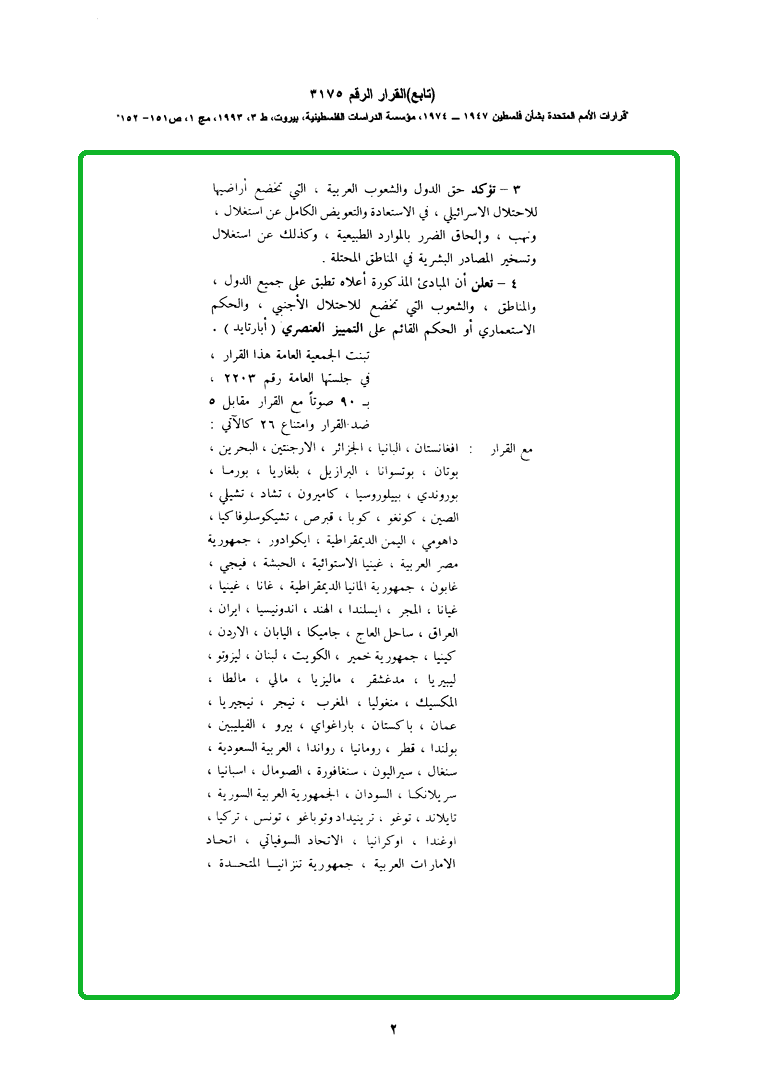 (تابع)القرار الرقم ٣١٧٥
"قرارات الأمم المتحدة بشأن فلسطين ١٩٤٧ ــ ١٩٧٤، مؤسسة الدراسات الفلسطينية، بيروت، ط ٣، ١٩٩٣، مج ١، ص١٥١- ١٥٢"
٣ – تؤكد حق الدول والشعوب العربية ، التي تخضع أراضيها
للاحتلال الاسرائيلي ، في الاستعادة والتعويض الكامل عن استغلال ،
ونهب ، وإلحاق الضرر بالموارد الطبيعية ، وكذلك عن استغلال
وتسخير المصادر البشرية في المناطق المحتلة .
٤ – تعلن أن المبادئ المذكورة أعلاه تطبق على جميع الدول ،
والمناطق ، والشعوب التي تخضع للاحتلال الأجنبي ، والحكم
الاستعماري أو الحكم القائم على التمييز العنصري ( أبارتايد ) .
تبنت الجمعية العامة هذا القرار ،
في جلستها العامة رقم ٢٢٠٣ ،
بـ ٩٠ صوتاً مع القرار مقابل ٥
ضد القرار وامتناع ٢٦ كالآتي :
مع القرار : افغانستان ، البانيا ، الجزائر ، الارجنتين ، البحرين ،
بوتان ، بوتسوانا ، البرازيل ، بلغاريا ، بورما ،
بوروندي ، بييلوروسيا ، كاميرون ، تشاد ، تشيلي ،
الصين ، كونغو ، كوبا ، قبرص ، تشيكوسلوفاكيا ،
داهومي ، اليمن الديمقراطية ، ايكوادور ، جمهورية
مصر العربية ، غينيا الاستوائية ، الحبشة ، فيجي ،
غابون ، جمهورية المانيا الديمقراطية ، غانا ، غينيا ،
غيانا ، المجر ، ايسلندا ، الهند ، اندونيسيا ، ايران ،
العراق ، ساحل العاج ، جاميكا ، اليابان ، الاردن ،
كينيا ، جمهورية خمير ، الكويت ، لبنان ، ليزوتو ،
ليبيريا ، مدغشقر ، ماليزيا ، مالي ، مالطا ،
المكسيك ، منغوليا ، المغرب ، نيجر ، نيجيريا ،
عمان ، باكستان ، باراغواي ، بيرو ، الفيليبين ،
بولندا ، قطر ، رومانيا ، رواندا ، العربية السعودية ،
سنغال ، سيراليون ، سنغافورة ، الصومال ، اسبانيا ،
سريلانكا ، السودان ، الجمهورية العربية السورية ،
تايلاند ، توغو ، ترينيداد وتوباغو ، تونس ، تركيا ،
اوغندا ، اوكرانيا ، الاتحاد السوفياتي ، اتحاد
الامارات العربية ، جمهورية تنزانيـا المتحـدة ،
٢